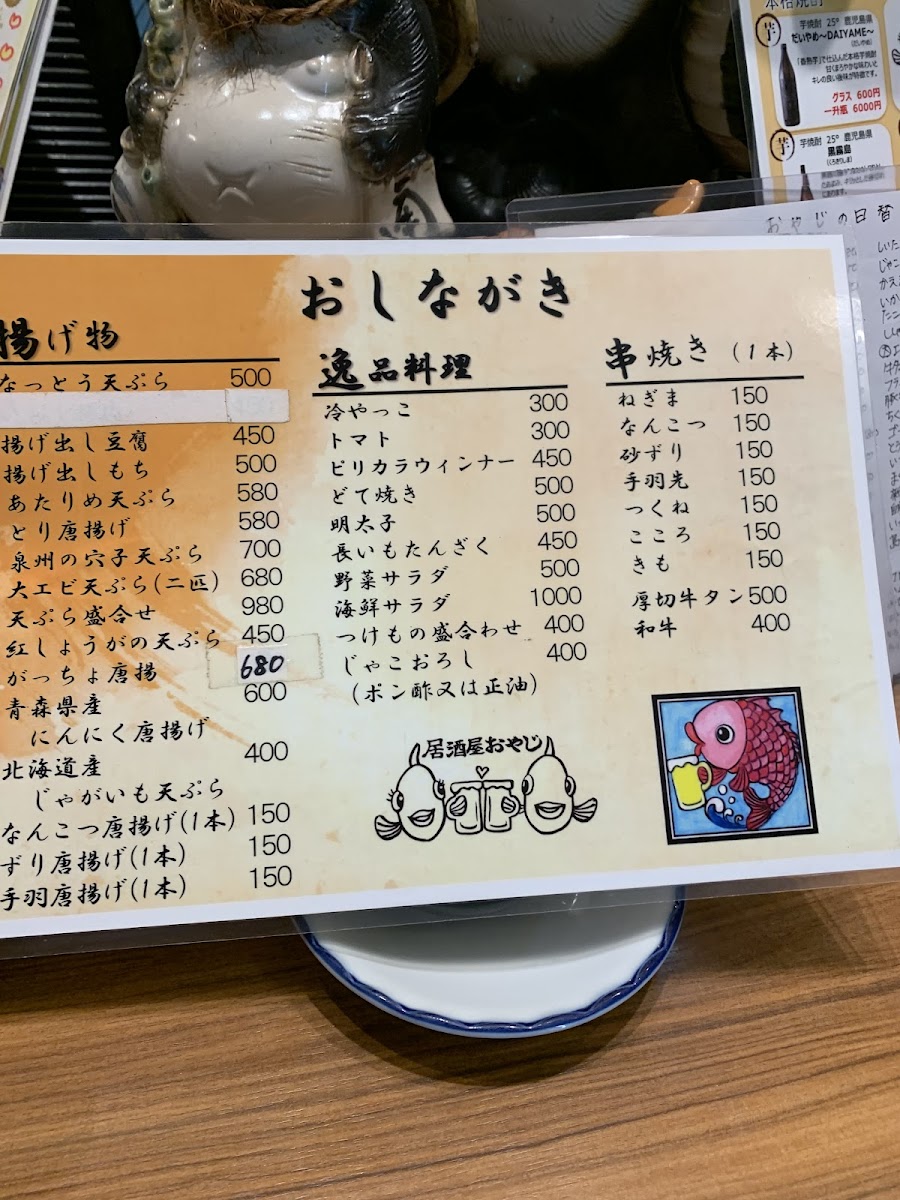 おしながき
揚げ物
なっとう天ぷら 500
揚げ出し豆腐 450
揚げ出しもち 500
あたりめ天ぷら 580
とり唐揚げ 580
泉州の穴子天ぷら 700
大エビ天ぷら(二匹) 680
天ぷら盛合せ 980
紅しょうがの天ぷら 450
がっちょ唐揚 680
青森県産 600
にんにく唐揚げ
北海道産 400
じゃがいも天ぷら
なんこつ唐揚げ(1本) 150
ずり唐揚げ(1本) 150
手羽唐揚げ(1本) 150
逸品料理
冷やっこ 300
トマト 300
ピリカラウィンナー 450
どて焼き 500
明太子 500
長いもたんざく 450
野菜サラダ 500
海鮮サラダ 1000
つけもの盛合わせ 400
じゃこおろし 400
(ポン酢又は正油)
居酒屋おやじ
串焼き (1本)
ねぎま 150
なんこつ 150
砂ずり 150
手羽先 150
つくね 150
こころ 150
きも 150
厚切牛タン 500
和牛 400
本格焼酎
芋
芋焼酎 25° 鹿児島県
だいやめ~DAIYAME~
(だいやめ)
「香熟芋」で仕込んだ本格芋焼酎
甘くまろやかな味わいと
キレの良い後味が特徴です。
グラス 600円
一升瓶 6000円
芋
芋焼酎 25° 鹿児島県
黒霧島
(くろきりしま)
おやじの日替